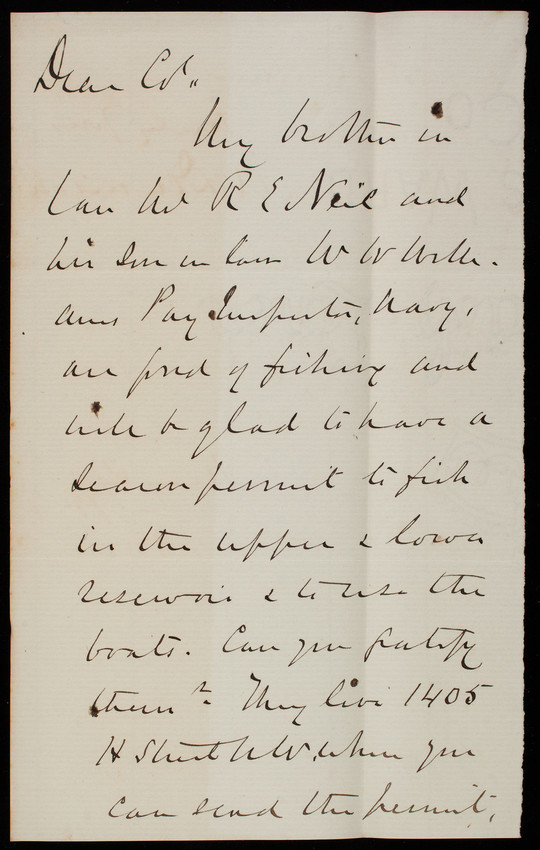 Dear Col.,
My brother in
law Mr R E Neil and
his Son in law W W Willi-
ams Pay Inspector, Navy,
are fond of fishing and
will be glad to have a
season permit to fish
in the upper & lower
reservoir & to use the
boats. Can you gratify
them? They live 1405
H Street N.W. where you
can send the permit,